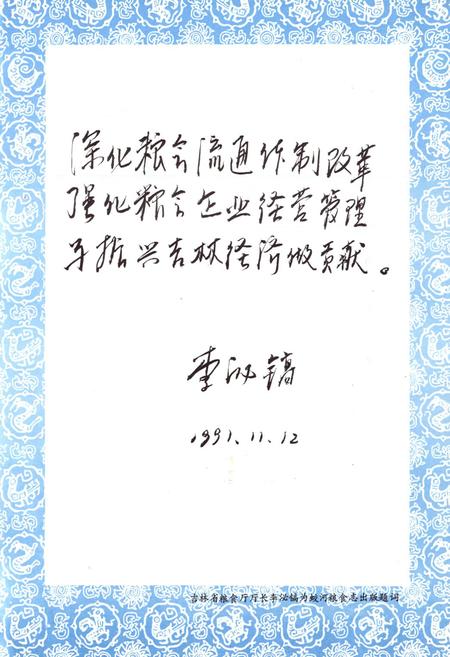 深化粮食流通体制改革
强化粮食企业经营管理
为振兴吉林经济做贡献。
李泌镐
1991.11.12
吉林省粮食厅厅长李泌镐为蛟河粮食志出版题词